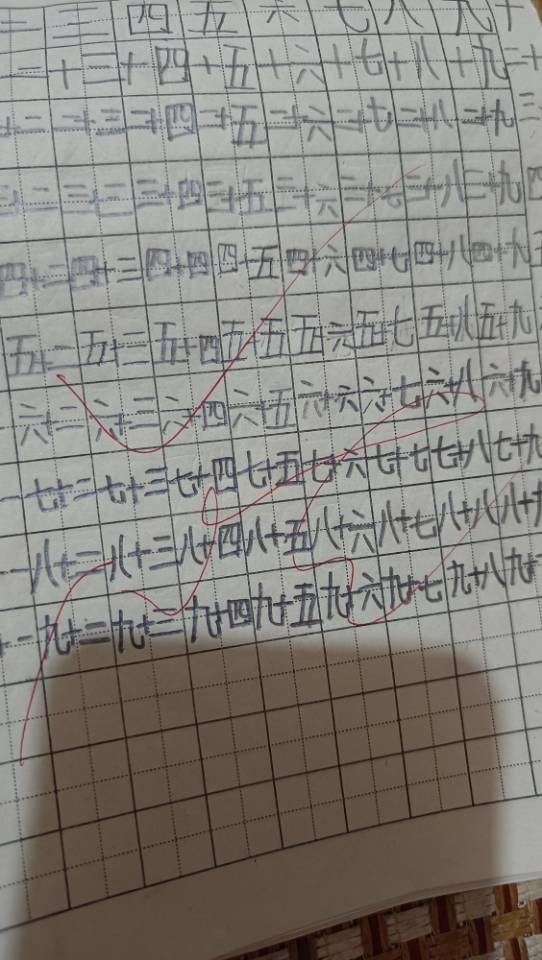 二 三 四 五 六 七 八 九 十
二 十三 十四 十五 十六 十七 十八 十九 二十
十二 二十三 二十四 二十五 二十六 二十七 二十八 二十九 三
三十二 三十三 三十四 三十五 三十六 三十七 三十八 三十九 四
四十二 四十三 四十四 四十五 四十六 四十七 四十八 四十九 五
五十二 五十三 五十四 五十五 五十六 五十七 五十八 五十九
六十二 六十三 六十四 六十五 六十六 六十七 六十八 六十九
一 七十二 七十三 七十四 七十五 七十六 七十七 七十八 七十九
一 八十二 八十三 八十四 八十五 八十六 八十七 八十八 八十九
十一 九十二 九十三 九十四 九十五 九十六 九十七 九十八 九十九